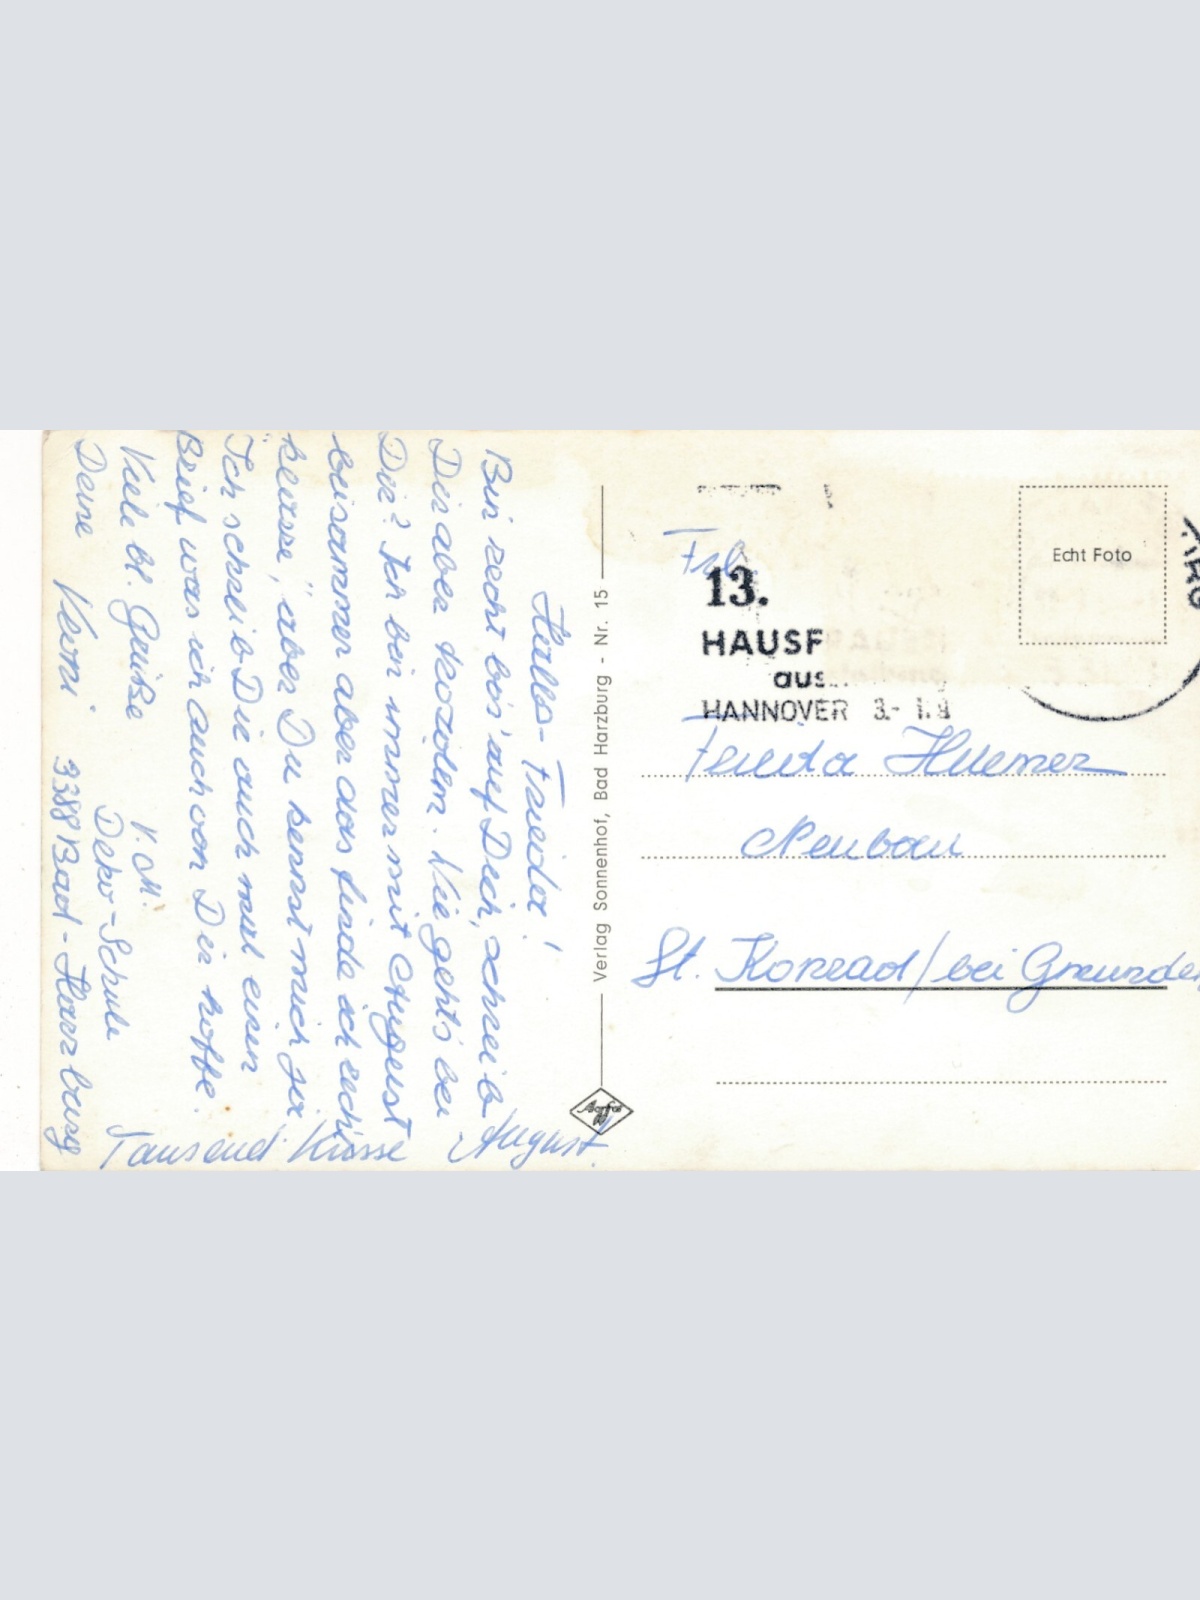 Hallo-Frieda!
Bin recht bös' auf Dich, schreib
Dir aber trotzdem. Wie geht's bei
Dir? Ich bin immer mit August
beisammen aber das finde ich recht
"klasse", aber Du kennst mich ja
Ich schreib Dir auch mal einen
Brief was ich auch von Dir hoffe.
Viele bl. Grüße
Deine Vroni
V. M.
Deko-Schule
3388 Bad-Harzburg
Tausend Küsse August.
Verlag Sonnenhof, Bad Harzburg - Nr. 15
Agfa
Echt Foto
Frl.
13.
HAUSF
aus
HANNOVER 3.-
Frieda Huemer
Neubau
St. Konrad/bei Gmunden